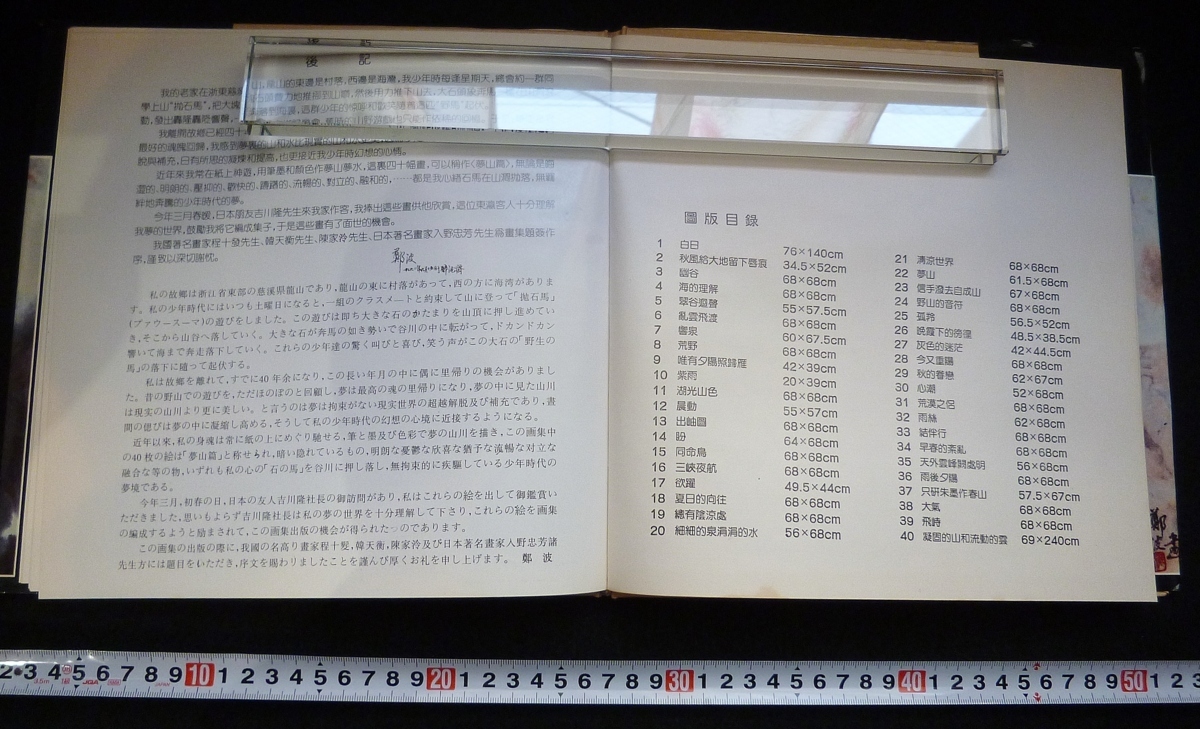 後記
我的老家在浙東
山的東邊是村落,西邊是海灣,我少年時每逢星期天,總會約一群同
學上山“拋石馬”,把大塊
動,發出轟隆轟隆響聲,
我離開故鄉已經四十
最好的魂魄回歸,我感到夢裏的山和水比現實的
脫與補充,日有所思的凝煉和提高,也更接近我少年時幻想的心情。
近年來我常在紙上神遊,用筆墨和顏色作夢山夢水,這裏四十幅畫,可以稱作《夢山篇》,無論是
澀的、明朗的、壓抑的、歡快的、躊躇的、流暢的、對立的、融和的,……都是我心緒石馬在山澗拋落,無羈
絆地奔騰的少年時代的夢。
今年三月春暖,日本朋友吉川隆先生來我家作客,我捧出這些畫供他欣賞,這位東瀛客人十分理解
我夢的世界,鼓勵我將它編成集子,于是這些畫有了面世的機會。
我國著名畫家程十發先生、韓天衡先生、陳家泠先生、日本著名畫家入野忠芳先生爲畫集題簽作
序,謹致以深切謝忱。
鄭波
私の故郷は浙江省東部の慈溪県龍山であり,龍山の東に村落があって,西の方に海湾がありま
す。私の少年時代にはいつも土曜日になると,一組のクラスメートと約束して山に登って「拋石馬」
(プァウースーマ)の遊びをしました。この遊びは即ち大きな石のかたまりを山頂に押し進めてい
き,そこから山谷へ落していく。大きな石が奔馬の如き勢いで谷川の中に転がって,ドカンドカン
響いて海まで奔走落下していく。これらの少年達の驚く叫びと喜び,笑う声がこの大石の「野生の
馬」の落下に随って起伏する。
私は故郷を離れて,すでに40年余になり,この長い年月の中に偶に里帰りの機会がありまし
た。昔の野山での遊びを,ただほのぼのと回顧し,夢は最高の魂の里帰りになり,夢の中に見た山川
は現実の山川より更に美しい。と言うのは夢は拘束がない現実世界の超越解脱及び補充であり,昼
間の偲びは夢の中に凝縮し高める,そうして私の少年時代の幻想の心境に近接するようになる。
近年以来,私の身魂は常に紙の上にめぐり馳せる,筆と墨及び色彩で夢の山川を描き,この画集中
の40枚の絵は「夢山篇」と称せられ,暗い隠れているもの,明朗な憂鬱な欣喜な猶予な流暢な対立な
融合な等の物,いずれも私の心の「石の馬」を谷川に押し落し,無拘束的に疾駆している少年時代の
夢境である。
今年三月,初春の日,日本の友人吉川隆社長の御訪問があり,私はこれらの絵を出して御鑑賞い
ただきました,思いもよらず吉川隆社長は私の夢の世界を十分理解して下さり,これらの絵を画集
の編成するようと励まされて,この画集出版の機会が得られたのであります。
この画集の出版の際に,我國の名高り畫家程十髪,韓天衡,陳家泠及び日本著名畫家入野忠芳諸
先生方には題目をいただき,序文を賜わりましたことを謹んび厚くお礼を申し上げます。 鄭 波
圖版目錄
1 白日 76×140cm
2 秋風給大地留下唇痕 34.5×52cm
3 幽谷 68×68cm
4 海的理解 68×68cm
5 翠谷遊聲 55×57.5cm
6 亂雲飛渡 68×68cm
7 響泉 60×67.5cm
8 荒野 68×68cm
9 唯有夕陽照歸雁 42×39cm
10 紫雨 20×39cm
11 湖光山色 68×68cm
12 晨動 55×57cm
13 出岫圖 68×68cm
14 盼 64×68cm
15 同命鳥 68×68cm
16 三峽夜航 68×68cm
17 欲躍 49.5×44cm
18 夏日的向往 68×68cm
19 總有陰涼處 68×68cm
20 細細的泉涓涓的水 56×68cm
21 清涼世界 68×68cm
22 夢山 61.5×68cm
23 信手潑去自成山 67×68cm
24 野山的音符 68×68cm
25 孤獨 56.5×52cm
26 晚霞下的徬徨 48.5×38.5cm
27 灰色的迷茫 42×44.5cm
28 今又重陽 68×68cm
29 秋的眷戀 62×67cm
30 心潮 52×68cm
31 荒漠之侶 68×68cm
32 雨絲 62×68cm
33 結伴行 68×68cm
34 早春的紊亂 68×68cm
35 天外雲峰闊處明 56×68cm
36 雨後夕陽 68×68cm
37 只研朱墨作春山 57.5×67cm
38 大氣 68×68cm
39 飛詩 68×68cm
40 凝固的山和流動的雲 69×240cm
2 3 4 5 6 7 8 9 10 1 2 3 4 5 6 7 8 9 20 1 2 3 4 5 6 7 8 9 30 1 2 3 4 5 6 7 8 9 40 1 2 3 4 5 6 7 8 9 50 1 2 3